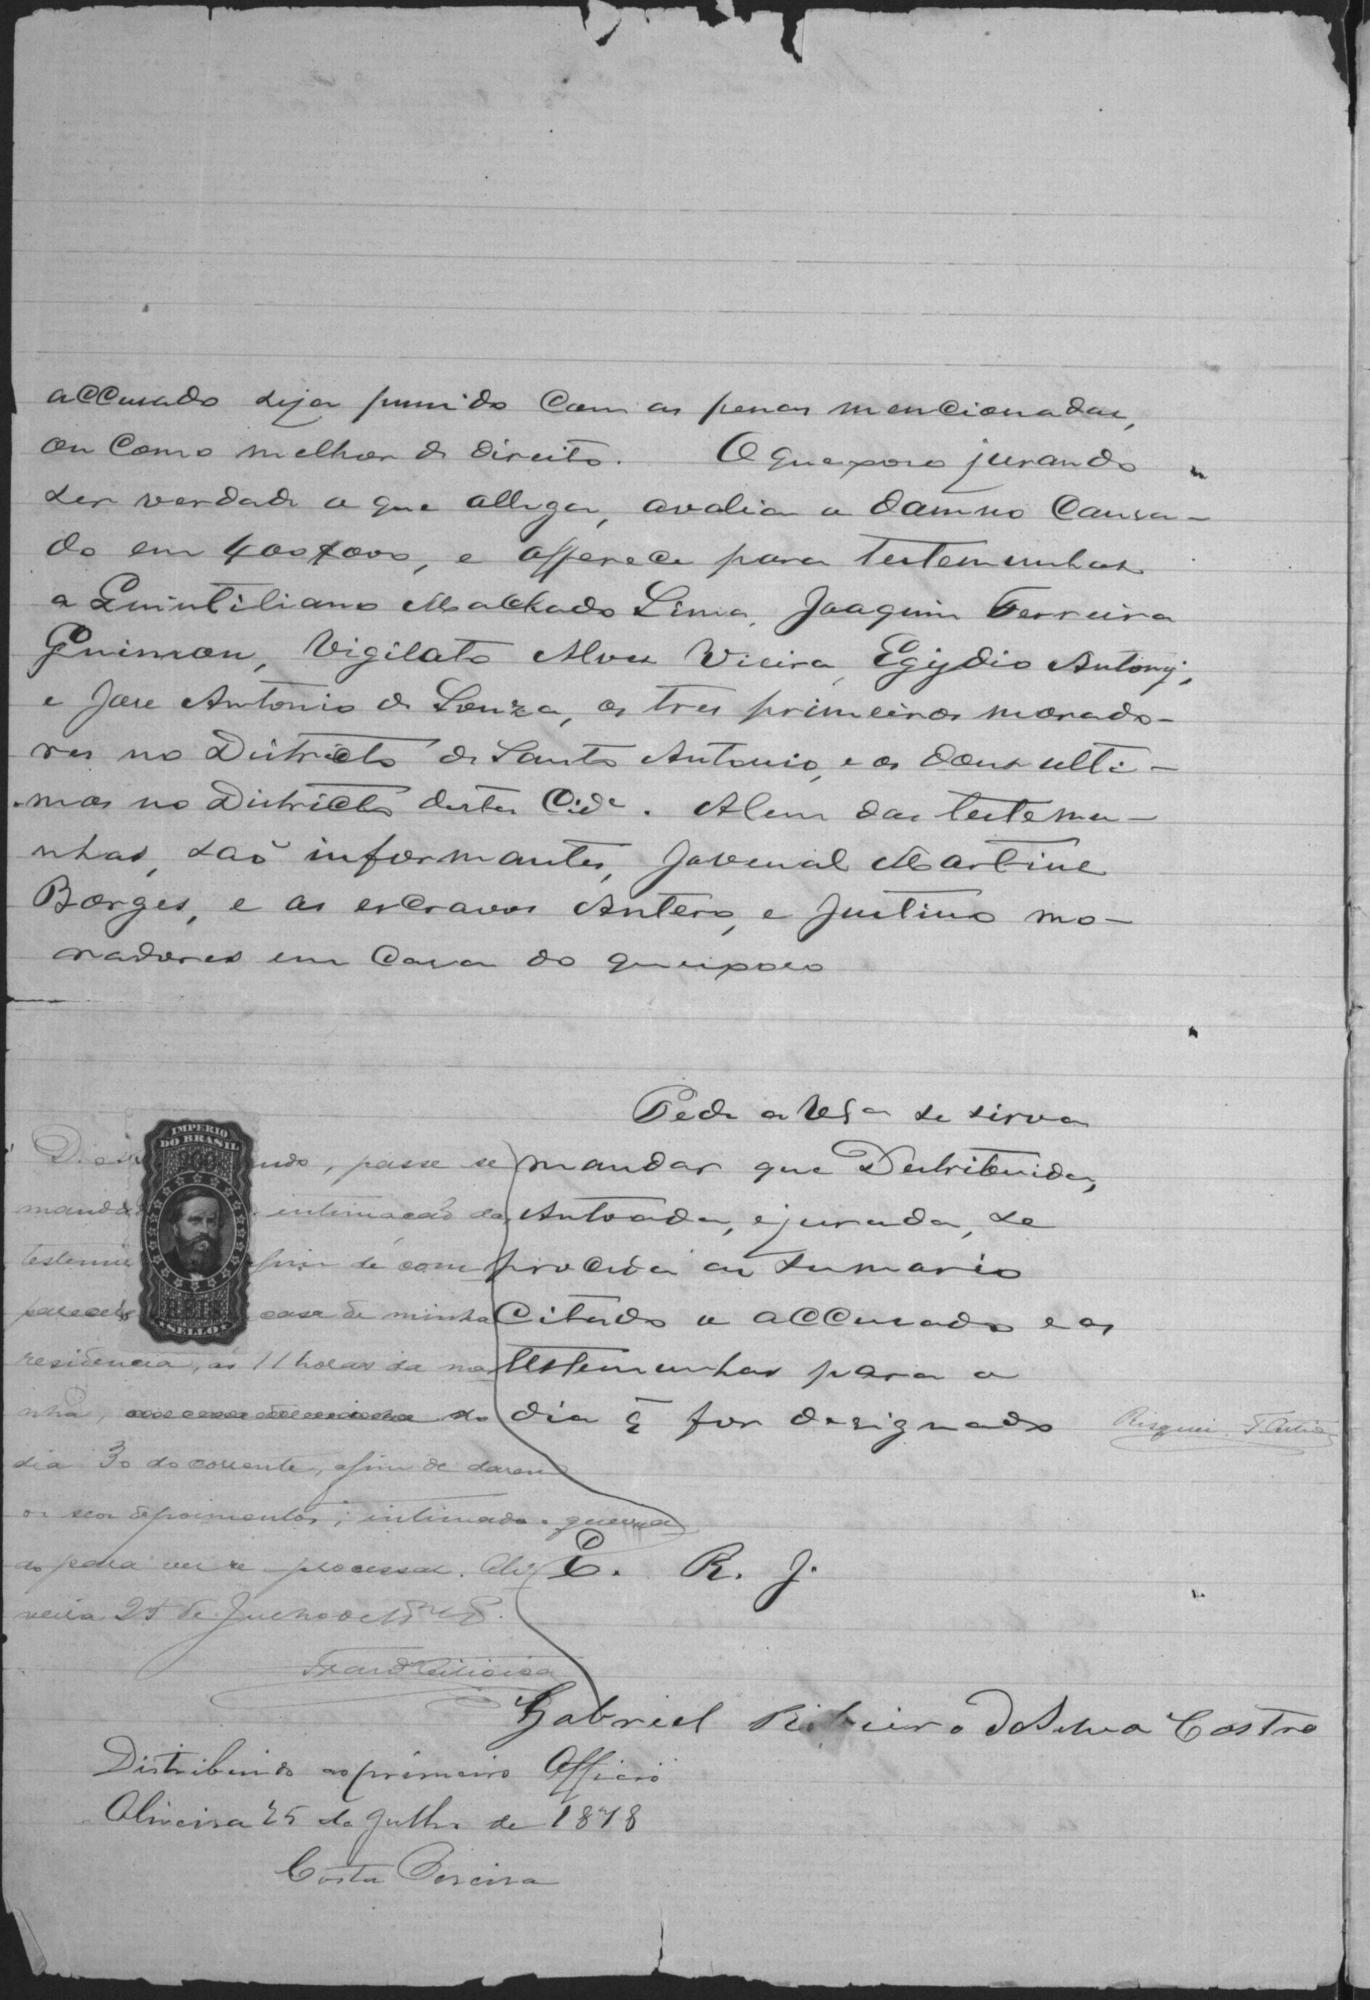 accusado seja punido com as penas mencionadas,
ou como melhor de direito. O queixoso jurando
ser verdade o que allega, avalia o damno causa-
do em 400$000, e offerece para testemunhas
a Quintiliano Machado Lima, Joaquim Ferreira
Guimarães, Vigilato Alves Vieira, Egydio Antony,
e Jose Antonio de Souza, os tres primeiros morado-
res no Districto de Santo Antonio, e os dous ulti-
mos no Districto desta Cid.e. Alem das testemu-
nhas, saõ informantes, Juvenal Martins
Borges, e os escravos Antero, e Justino mo-
radores em casa do queixoso
Pede a VSª se sirva
mandar que Destribuida,
Autoada, e jurada, se
proceda ao sumario
citado o accusado e as
testemunhas para o
dia q̃ for designado
E. R. J.
Gabriel Ribeiro da Silva Castro
IMPERIO
DO BRASIL
SELLO
passe se
mandado intimação das
testemu afim de com
parecer casa de minha
residencia, ás 11 horas da ma
nhã, do
dia 30 do corrente, afim de darem
os seos depoimentos; intimado o querella
do para ver se processar. Oli
veira 25 de Julho de 1878.
Distribuido ao primeiro Officio
Oliveira 25 de Julho de 1878
Costa Pereira